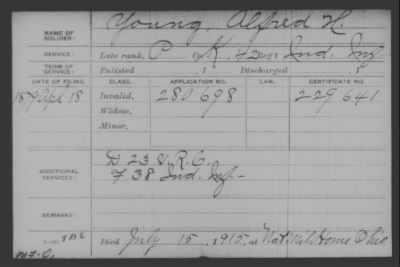 NAME OF SOLDIER: Young, Alfred H.
SERVICE: Late rank, P Co. K, 42 Reg't Ind. Inf
TERM OF SERVICE: Enlisted , 1 Discharged , 1
DATE OF FILING. CLASS. APPLICATION NO. LAW. CERTIFICATE NO.
1879 Apl 18 Invalid, 280 698 229 641
Widow,
Minor,
ADDITIONAL SERVICES: D 23 V.R.C.
F 38 Ind. Inf
REMARKS:
Died July 15, 1915, at Nat Mil Home Ohio